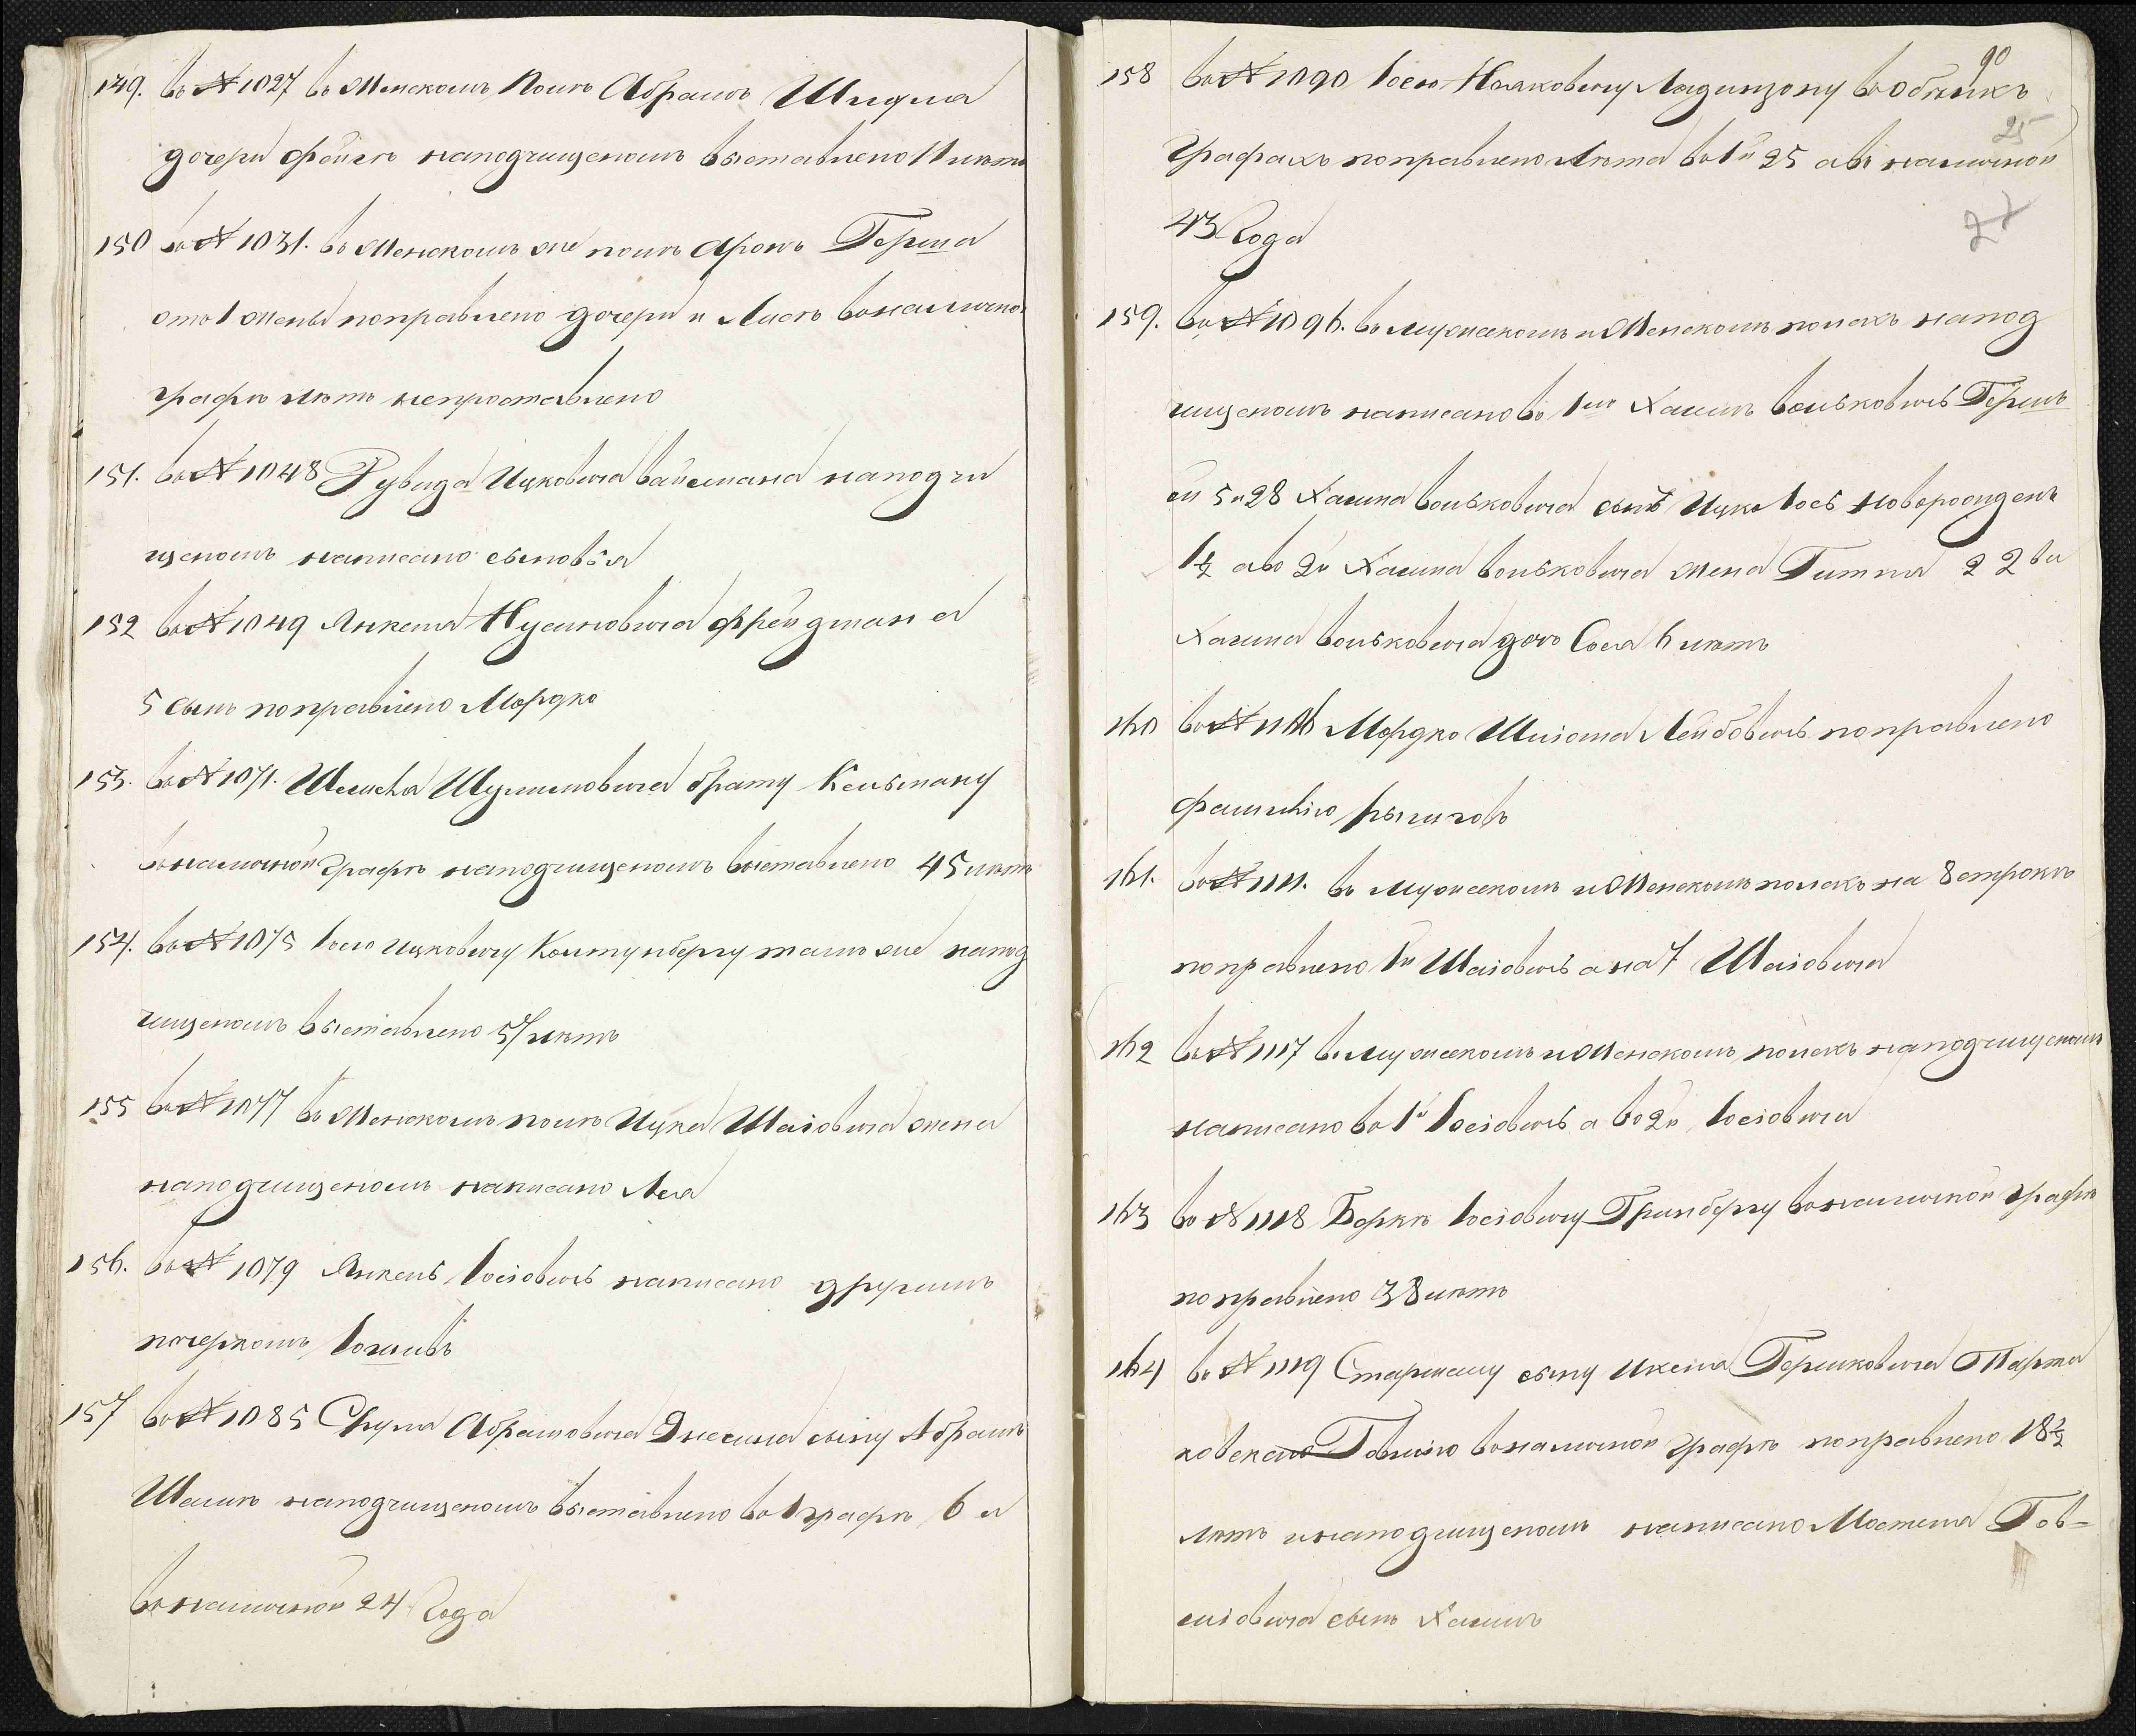 149. въ № 1027 въ Женскомъ Полѣ Абрамъ Шидма
дочери Фейгѣ наподчищеномъ выставлено 11 лѣтъ
150 въ № 1031. въ Женскомъ же полѣ Аронъ Герша
отъ 1 жены поправлено дочери и Ласѣ въналично
графѣ лѣтъ непроставлено
151. въ № 1048 Рувида Ицковича Вайсмана наподчи
щеномъ написано сыновья
152 въ № 1049 Янкеля Нусиновича Фрейдмана
5 сынъ поправлено Мордко
153. въ № 1071. Шулимовича брату Кельману
въналичной графѣ наподчищеномъ выставлено 45 лѣтъ
154. въ № 1075 Іосю Ицковичу тамъ же напод
чищеномъ выставлено 57 лѣтъ
155 въ № 1077 въ Женскомъ полѣ Ицка Шаіовича жена
наподчищеномъ написано Лея
156. въ № 1079 Янкель Іосіовичъ написано другимъ
почеркомъ
157 въ № 1085 Срула Абрамовича сыну Абрамъ
наподчищеномъ выставлено въ 1 графѣ 6 а
въналичной 24 Года
90
158 въ № 1090 Іосю Ладинзону въ Обѣихъ
25
Графахъ поправлено Лѣта въ 1й 25 авъ наличной
27
43 Года
159. въ № 1096. въ мужескомъ и Женскомъ полахъ напод
чищеномъ написано въ 1мъ Хаимъ Вольковичъ Гершъ
ей 5 и 28 Хаима Вольковича сынъ Ицко Іось новорожденъ
1/2 а во 2й Хаима Вольковича жена Гитля 22 ва
Хаима Вольковича дочь Сося 6 лѣтъ
160 въ № 1106 Мордко Шліома Лейбовичъ поправлено
фамилію
161. въ № 1111. въ мужескомъ и Женскомъ полахъ на 8 строкѣ
поправлено 1й Шаіовичъ а на 7 Шаіовича
162 въ № 1117 въ мужескомъ и Женскомъ полахъ наподчищеномъ
написано въ 1й Іосіовичъ а во 2й Іосіовича
163 въ № 1118 Беркѣ Іосіовичу Гринбергу въналичной графѣ
поправлено 38 лѣтъ
164 въ № 1119 Старшему сыну Икеля Гершковича Парта
ковскаго Говшію въналичной графѣ поправлено 18 1/2
лѣтъ инаподчищеномъ написано Мостеля Гов=
шіовича сынъ Хаимъ